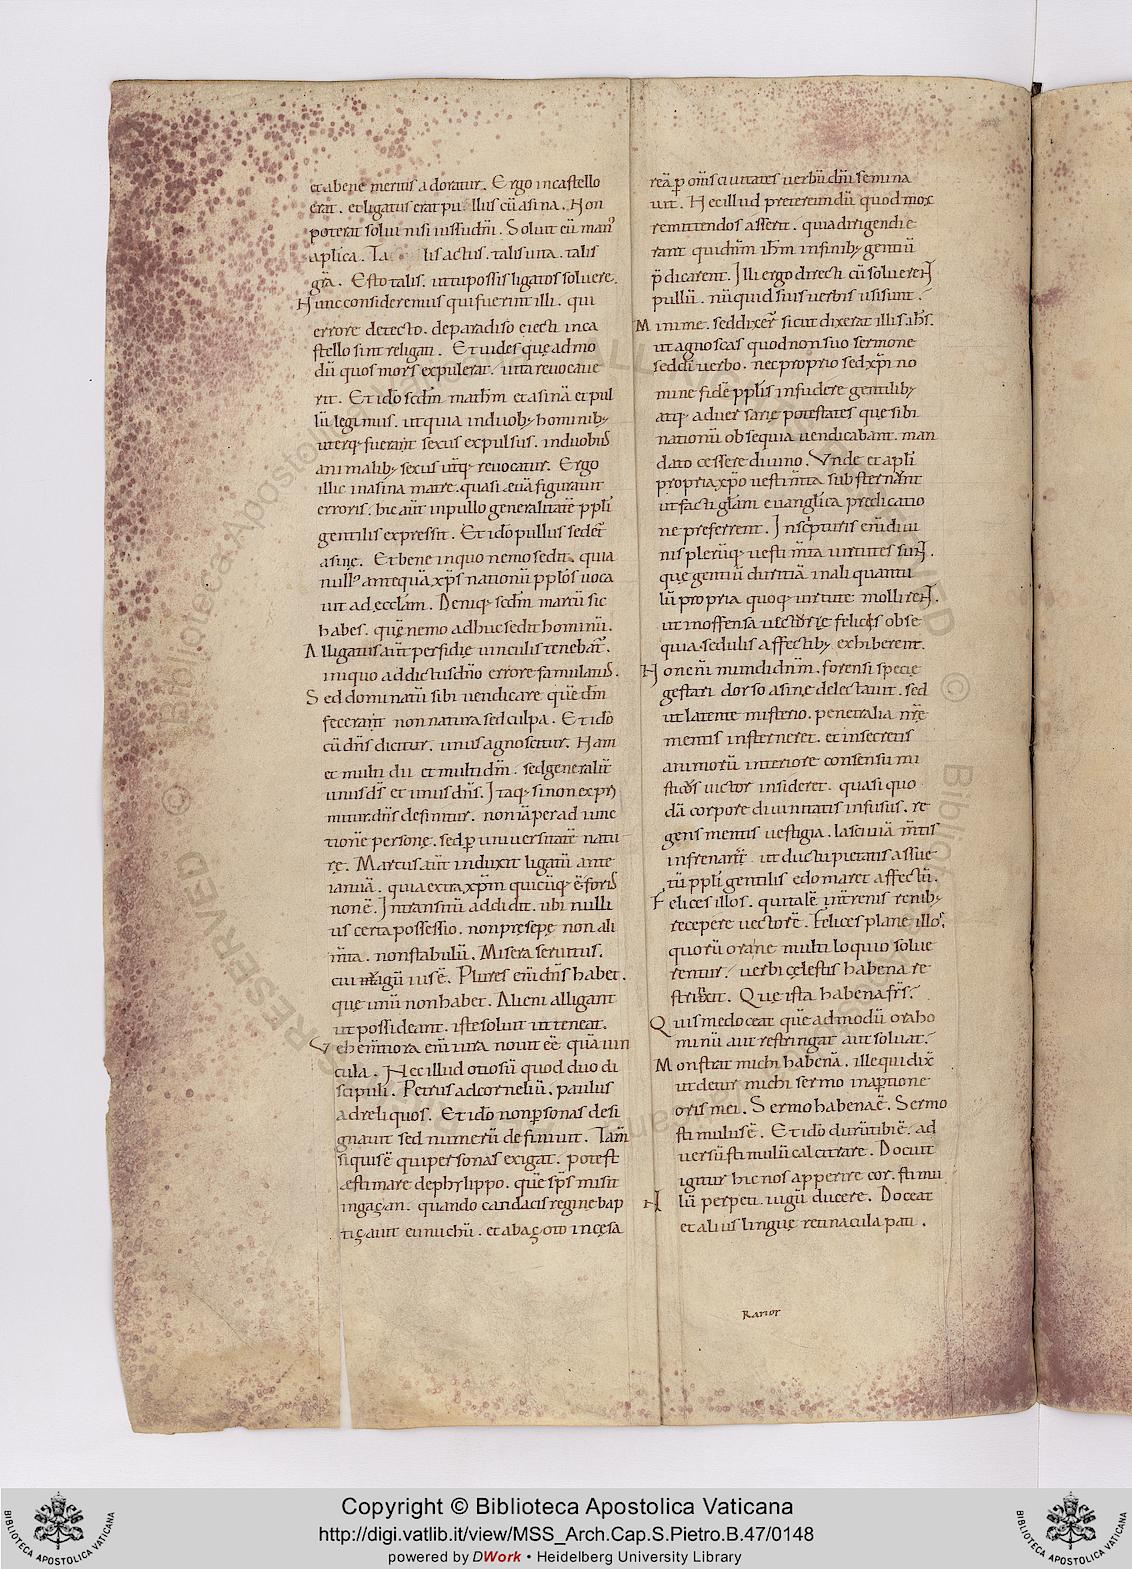 et a bene meritis adoratur. Ergo in castello
erat. et ligatus erat pullus cū asina. Non
poterat solui nisi iussu dn̄i. Soluit eū man᷒
ap̄lica. Ta lis actus. talis uita. talis
gr̄a. Esto talis. ut tu possis ligatos soluere.
Nunc consideremus qui fuerint illi. qui
errore detecto. de paradiso eiecti in ca
stello sint religati. Et uides quę admo
dū quos mors expulerat. uita reuocaue
rit. Et idō scdm̄ math̄m et asinā et pul
lū legimus. ut quia in duob; hominib;
uterq; fuerant sexus expulsus. in duobus
animalib; sexus utq; reuocatur. Ergo
illic in asina matre. quasi euā figurauit
erroris. hic aūt in pullo generalitatē ppl̄i
gentilis expressit. Et idō pullus sedet̄
asinę. Et bene in quo nemo sedit. quia
null᷒ antequā xp̄s nationū ppl̄os uoca
uit ad ęccl̄am. Deniq; scdm̄ marcū sic
habes. quē nemo adhuc sedit hominū.
Alligatus aūt perfidię uinculis tenebat̄.
iniquo addictus dn̄o errore famulatus.
Sed dominatū sibi uendicare quē dn̄m
fecerant non natura sed culpa. Et idō
cū dn̄s dicitur. unus agnoscitur. Nam
et multi dii et multi dn̄i. sed generalit̄
unus ds̄ et unus dn̄s. Itaq; si non expri
mitur dn̄s definitur. non iā per ad iunc
tionē personę. sed p uniuersitatē natu
rę. Marcus aūt induxit ligatū ante
ianuā. quia extra xp̄m quicūq; ē foris
non ē. In transitū addidit. ubi nulli
us certa possessio. non presepę non ali
m̄ta. non stabulū. Misera seruitus.
cui uagū ius ē. Plures em̄ dn̄s habet.
que unū non habet. Alieni alligant
ut possideant. iste soluit ut teneat.
Vehem̄tiora em̄ iura nouit eē quā uin
cula. Nec illud otiosū quod duo di
scipuli. Petrus ad corneliū. paulus
ad reliquos. Et idō non psonas desi
gnauit sed numerū definiuit. Tam̄
si quis ē qui personas exigat. potest
ęstimare de phylippo. quē sp̄s misit
in gaçan. quando candacis regine bap
tiçauit eunuchū. et ab açoto in cęsa
reā p om̄s ciuitates uerbū dn̄i semina
uit. Nec illud pretereundū quod mox
remittendos asserit. quia dirigendi e
rant qui dn̄m ih̄m in finib; gentiū
p̄dicarent. Illi ergo directi cū soluerent
pullū. nūquid suis uerbis usi sunt.
Minime. sed dixer̄ sicut dixerat illis ih̄s.
ut agnoscas quod non suo sermone
sed dī uerbo. nec proprio sed xp̄i no
mine fidē ppl̄is infudere gentilib;
atq; aduersarię potestates que sibi
nationū obsequia uendicabant. man
dato cessere diuino. Vnde et apl̄i
propria xp̄o uestim̄ta substernunt
ut facti gl̄am euanglīca predicatio
ne preferrent. In scripturis em̄ diui
nis plerūq; uestim̄ta uirtutes sunt.
que gentiū duritiā in aliquantū
lū propria quoq; uirtute mollirent.
ut inoffensa uectorię felicis obse
quia. sedulis affectib; exhiberent.
Non em̄ mundi dn̄m. forensi specię
gestari dorso asine delectauit. sed
ut latente misterio. penetralia nr̄ę
mentis insterneret. et in secretis
animorū interiore consensu mi
sticus uictor insideret. quasi quo
dā corpore diuinitatis infusus. re
gens mentis uestigia. lasciuiā m̄tis
infrenaret. ut ductu pietatis assue
tū ppl̄i gentilis edomaret affectū.
Felices illos. qui talē int̄ernis renib;
recepere uectorē. Felices plane illos.
quorū ora ne multiloquio solue
rentur. uerbi çelestis habena re
strinxit. Quę ista habena fr̄s.
Quis me doceat quē admodū ora ho
minū aut restringat aut soluat.
Monstrat michi habenā. ille qui dix̄
ut detur michi sermo in aptione
oris mei. Sermo habena ē. Sermo
stimulus ē. Et idō durū tibi ē. ad
uersū stimulū calcitrare. Docuit
igitur hic nos apperire cor. stimu
lū perpeti. iugū ducere. Doceat
N
et alius linguę retinacula pati.
Rarior
Copyright © Biblioteca Apostolica Vaticana
http://digi.vatlib.it/view/MSS_Arch.Cap.S.Pietro.B.47/0148
powered by DWork • Heidelberg University Library